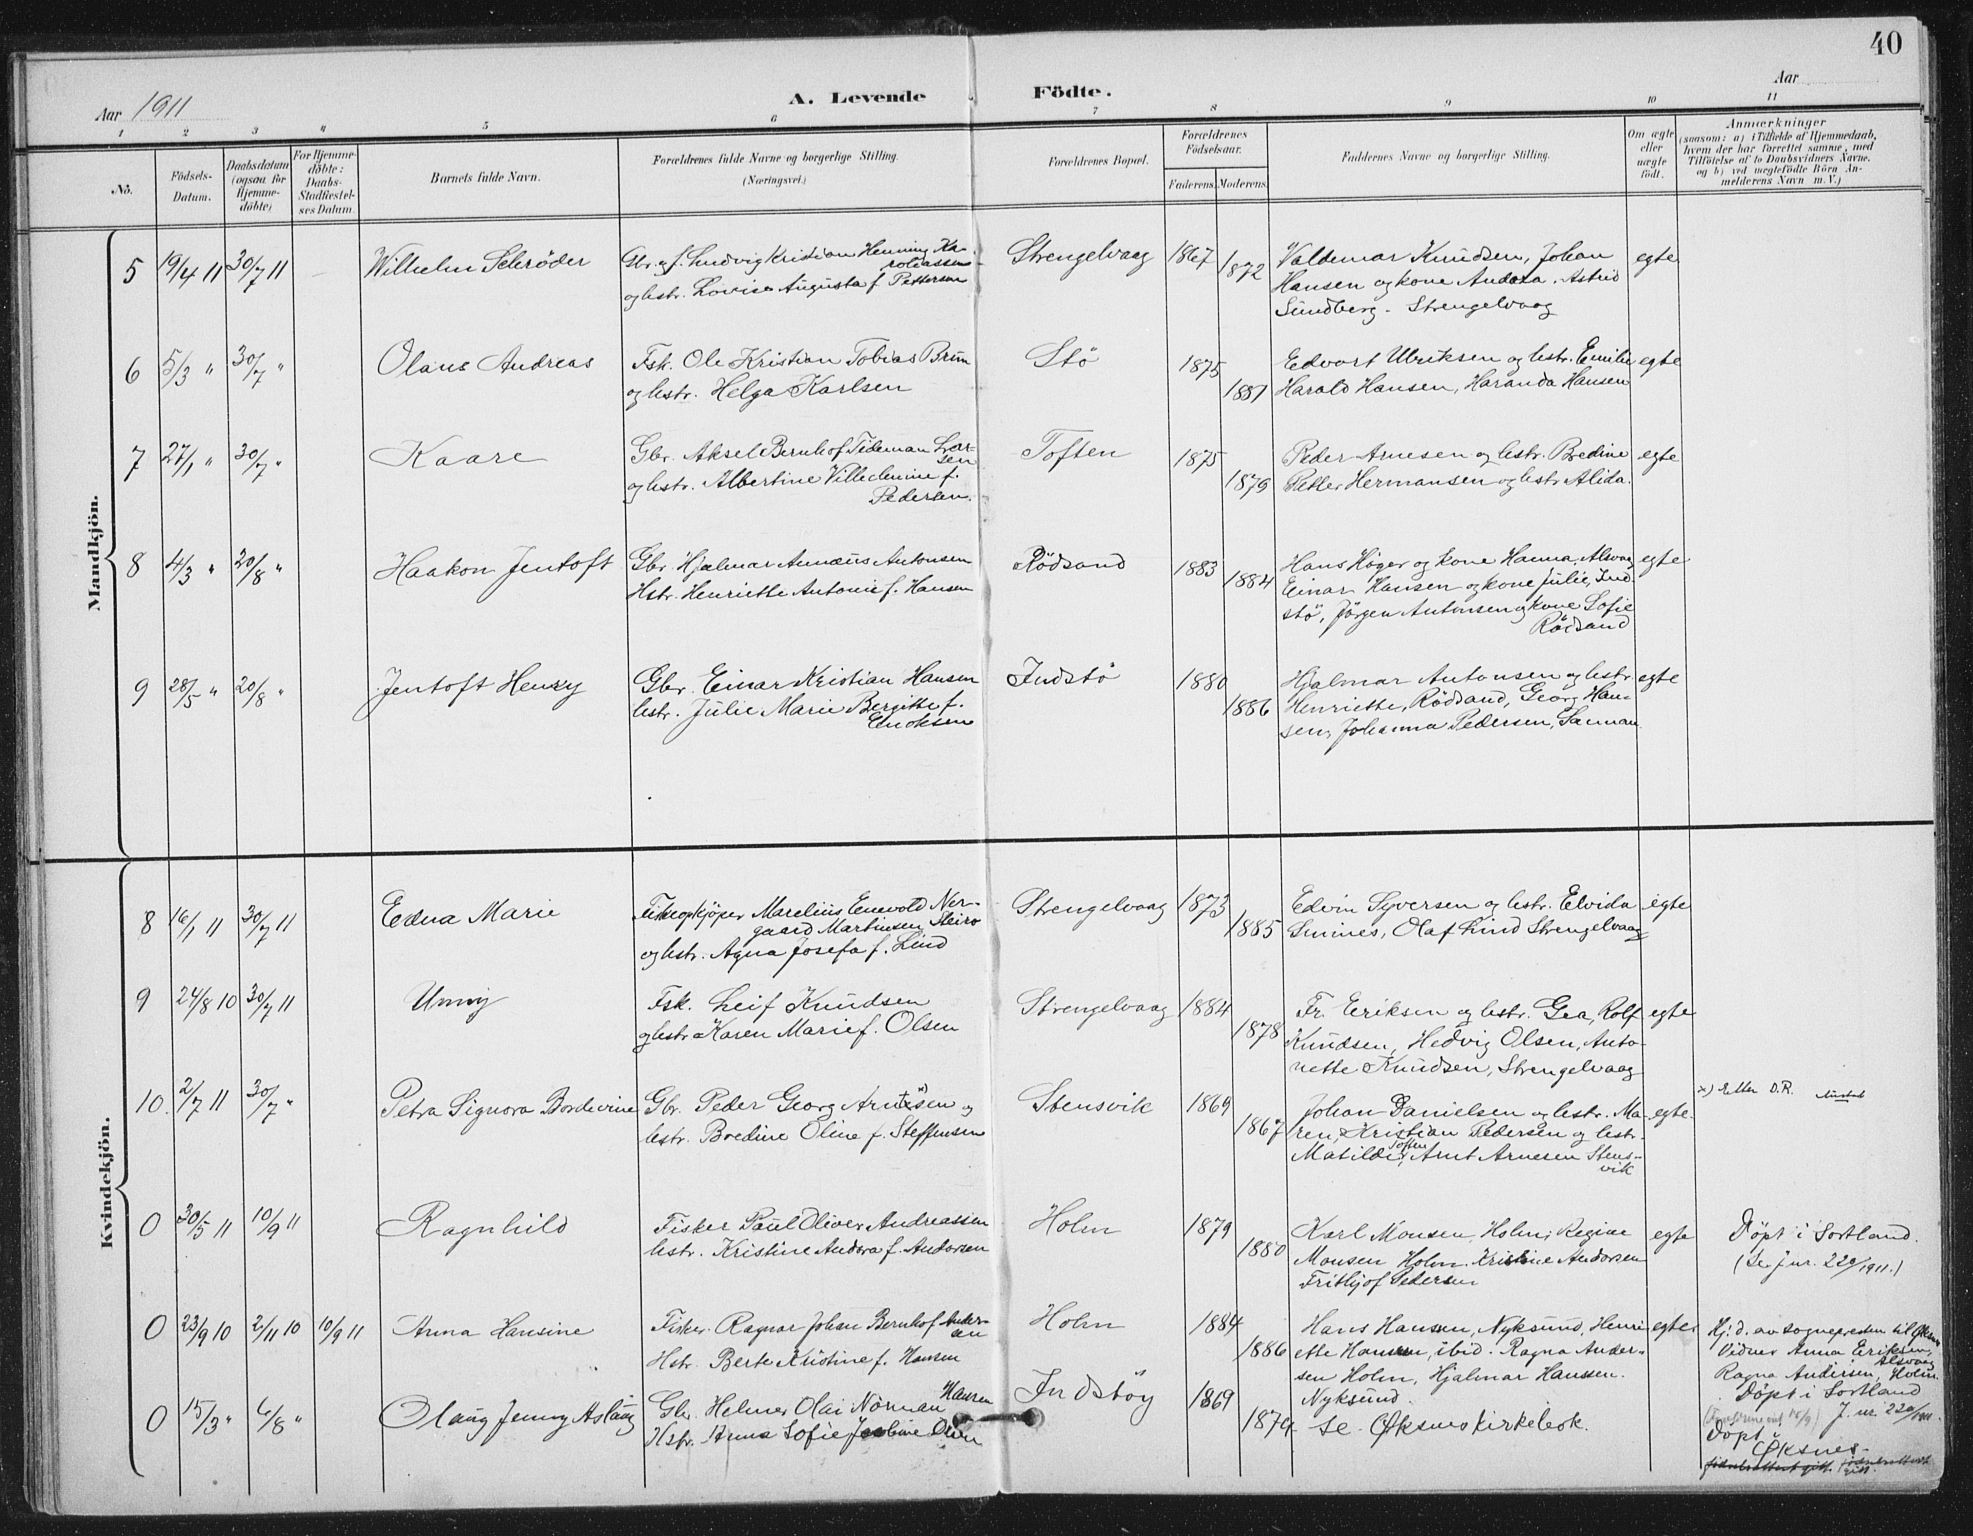 40
Aar 1911
A. Levende Födte.
Aar
1 2 3 4 5 6 7 8 9 10 11
Nō.
Födsels-Datum.
Daabsdatum (ogsaa for Hjemme-döbte)
For Hjemme-döbte: Daabs-Stadfæstel-ses Datum
Barnets fulde Navn.
Forældrenes fulde Navne og borgerlige Stilling.
(Næringsvei.)
Forældrenes Bopæl.
Forældrenes Födselsaar.
Faderens. Moderens.
Faddernes Navne og borgerlige Stilling.
Om ægte eller uægte födt.
Anmærkninger
(saasom: a) i Tilfælde af Hjemmedaab,
hvem der har forrettet samme, med
Tilföielse af to Daabsvidners Navne.
og b) ved uægtefödte Börn An-
melderens Navn m. V.)
Mandkjön.
5 19/4 11 30/7 11 Wilhelm Schrøder
Gbr. og f. Ludvig Kristian Henning Ka-
roliassen
og hstr. Lovise Augusta f. Pettersen
Strengelvaag 1867 1872
Valdemar Knudsen, Johan
Hansen og kone Andora. Astrid
Sundberg - Strengelvaag
egte
6 5/3 " 30/7 " Olaus Andreas
Fsk. Ole Kristian Tobias Brun
og hstr. Helga Karlsen
Stö 1875 1881
Edvart Ulriksen og hstr. Emilie
Harald Hansen, Haranda Hansen
egte
7 27/1 " 30/7 " Kaare
Gbr. Aksel Bernhof Tideman Lar-
sen
og hstr. Albertine Villechmine f.
Pedersen.
Toften 1875 1879
Peder Arnesen og hstr. Bredine
Petter Hermansen og hstr Alida.
egte
8 4/3 " 20/8 " Haakon Jentoft
Gbr. Hjalmar Annæus Antonsen
Hstr. Henriette Antonie f. Hansen
Rödsand 1883 1884
Hans Höger og kone Hanna, Alsvaag
Einar Hansen og kone Julie, Ind-
stö, Jörgen Antonsen og kone Sofie
Rödsand
egte
9 28/5 " 20/8 " Jentoft Henry
Gbr. Einar Kristian Hansen
hstr. Julie Marie Bergitte f.
Enoksen
Indstö 1880 1886
Hjalmar Antonsen og hstr
Henriette, Rödsand, Georg Han-
sen, Johanna Pedersen, Sannan
egte
Kvindekjön.
8 16/1 11 30/7 11 Edna Marie
Fiskeopkjöper Marelius Enevold Nor-
gaard Martinsen Steiro
og hstr. Agna Josefa f. Lind
Strengelvaag 1873 1885
Edvin Syversen og hstr. Elvida
Smines, Olaf Lind Strengelvaag
egte
9 24/8 10 30/7 11 Unny
Fsk. Leif Knudsen
og hstr Karen Marie f. Olsen
Strengelvaag 1884 1878
Fr. Eriksen og hstr. Gea, Rolf
Knudsen, Hedvig Olsen, Anto-
nette Knudsen, Strengelvaag
egte
10. 2/7 11 30/7 " Petra Signora Bordevine
Gbr. Peder Georg Arntsen og
hstr. Bredine Oline f. Steffensen
Stensvik 1869 1867
Johan Danielsen og hstr. Ma-
ren, Kristian Pedersen og hstr.
Matilde, Toften, Arnt Arnesen Stens-
vik
egte.
x) Etter D.R.
0 30/5 11 10/9 11 Ragnhild
Fisker Paul Oliver Andreassen
hstr. Kristine Andora f. Andorsen
Holm 1879 1880
Karl Monsen, Holm, Regine
Monsen Holm. Kristine Andorsen
Fritjof Pedersen
egte
Döpt i Sortland.
(Se J nr. 220/1911.)
0 23/9 10 2/11 10 10/9 11 Anna Hansine
Fisker. Ragnar Johan Bernhof Ander-
sen
Hstr. Berte Kristine f. Hansen
Holm 1884 1886
Hans Hansen, Nyksund, Henri-
ette Hansen, ibid. Ragna Ander-
sen Holm, Hjalmar Hanssen.
Nyksund.
egte
Hj. d. av sognepresten til Øksnes
Vidner Anna Eriksen,
Alsvaag
Ragna Andersen, Holm.
Döpt i Sortland
J. nr. 220/1911.
0 15/3 " 6/8 " Olaug Jenny Aslaug
Gbr. Helmer Olai Norman Hansen
Hstr. Anna Sofie Josefine Olsen
Indstöy 1869 1874
Se Øksnes kirkebok.
Döpt i
Øksnes.